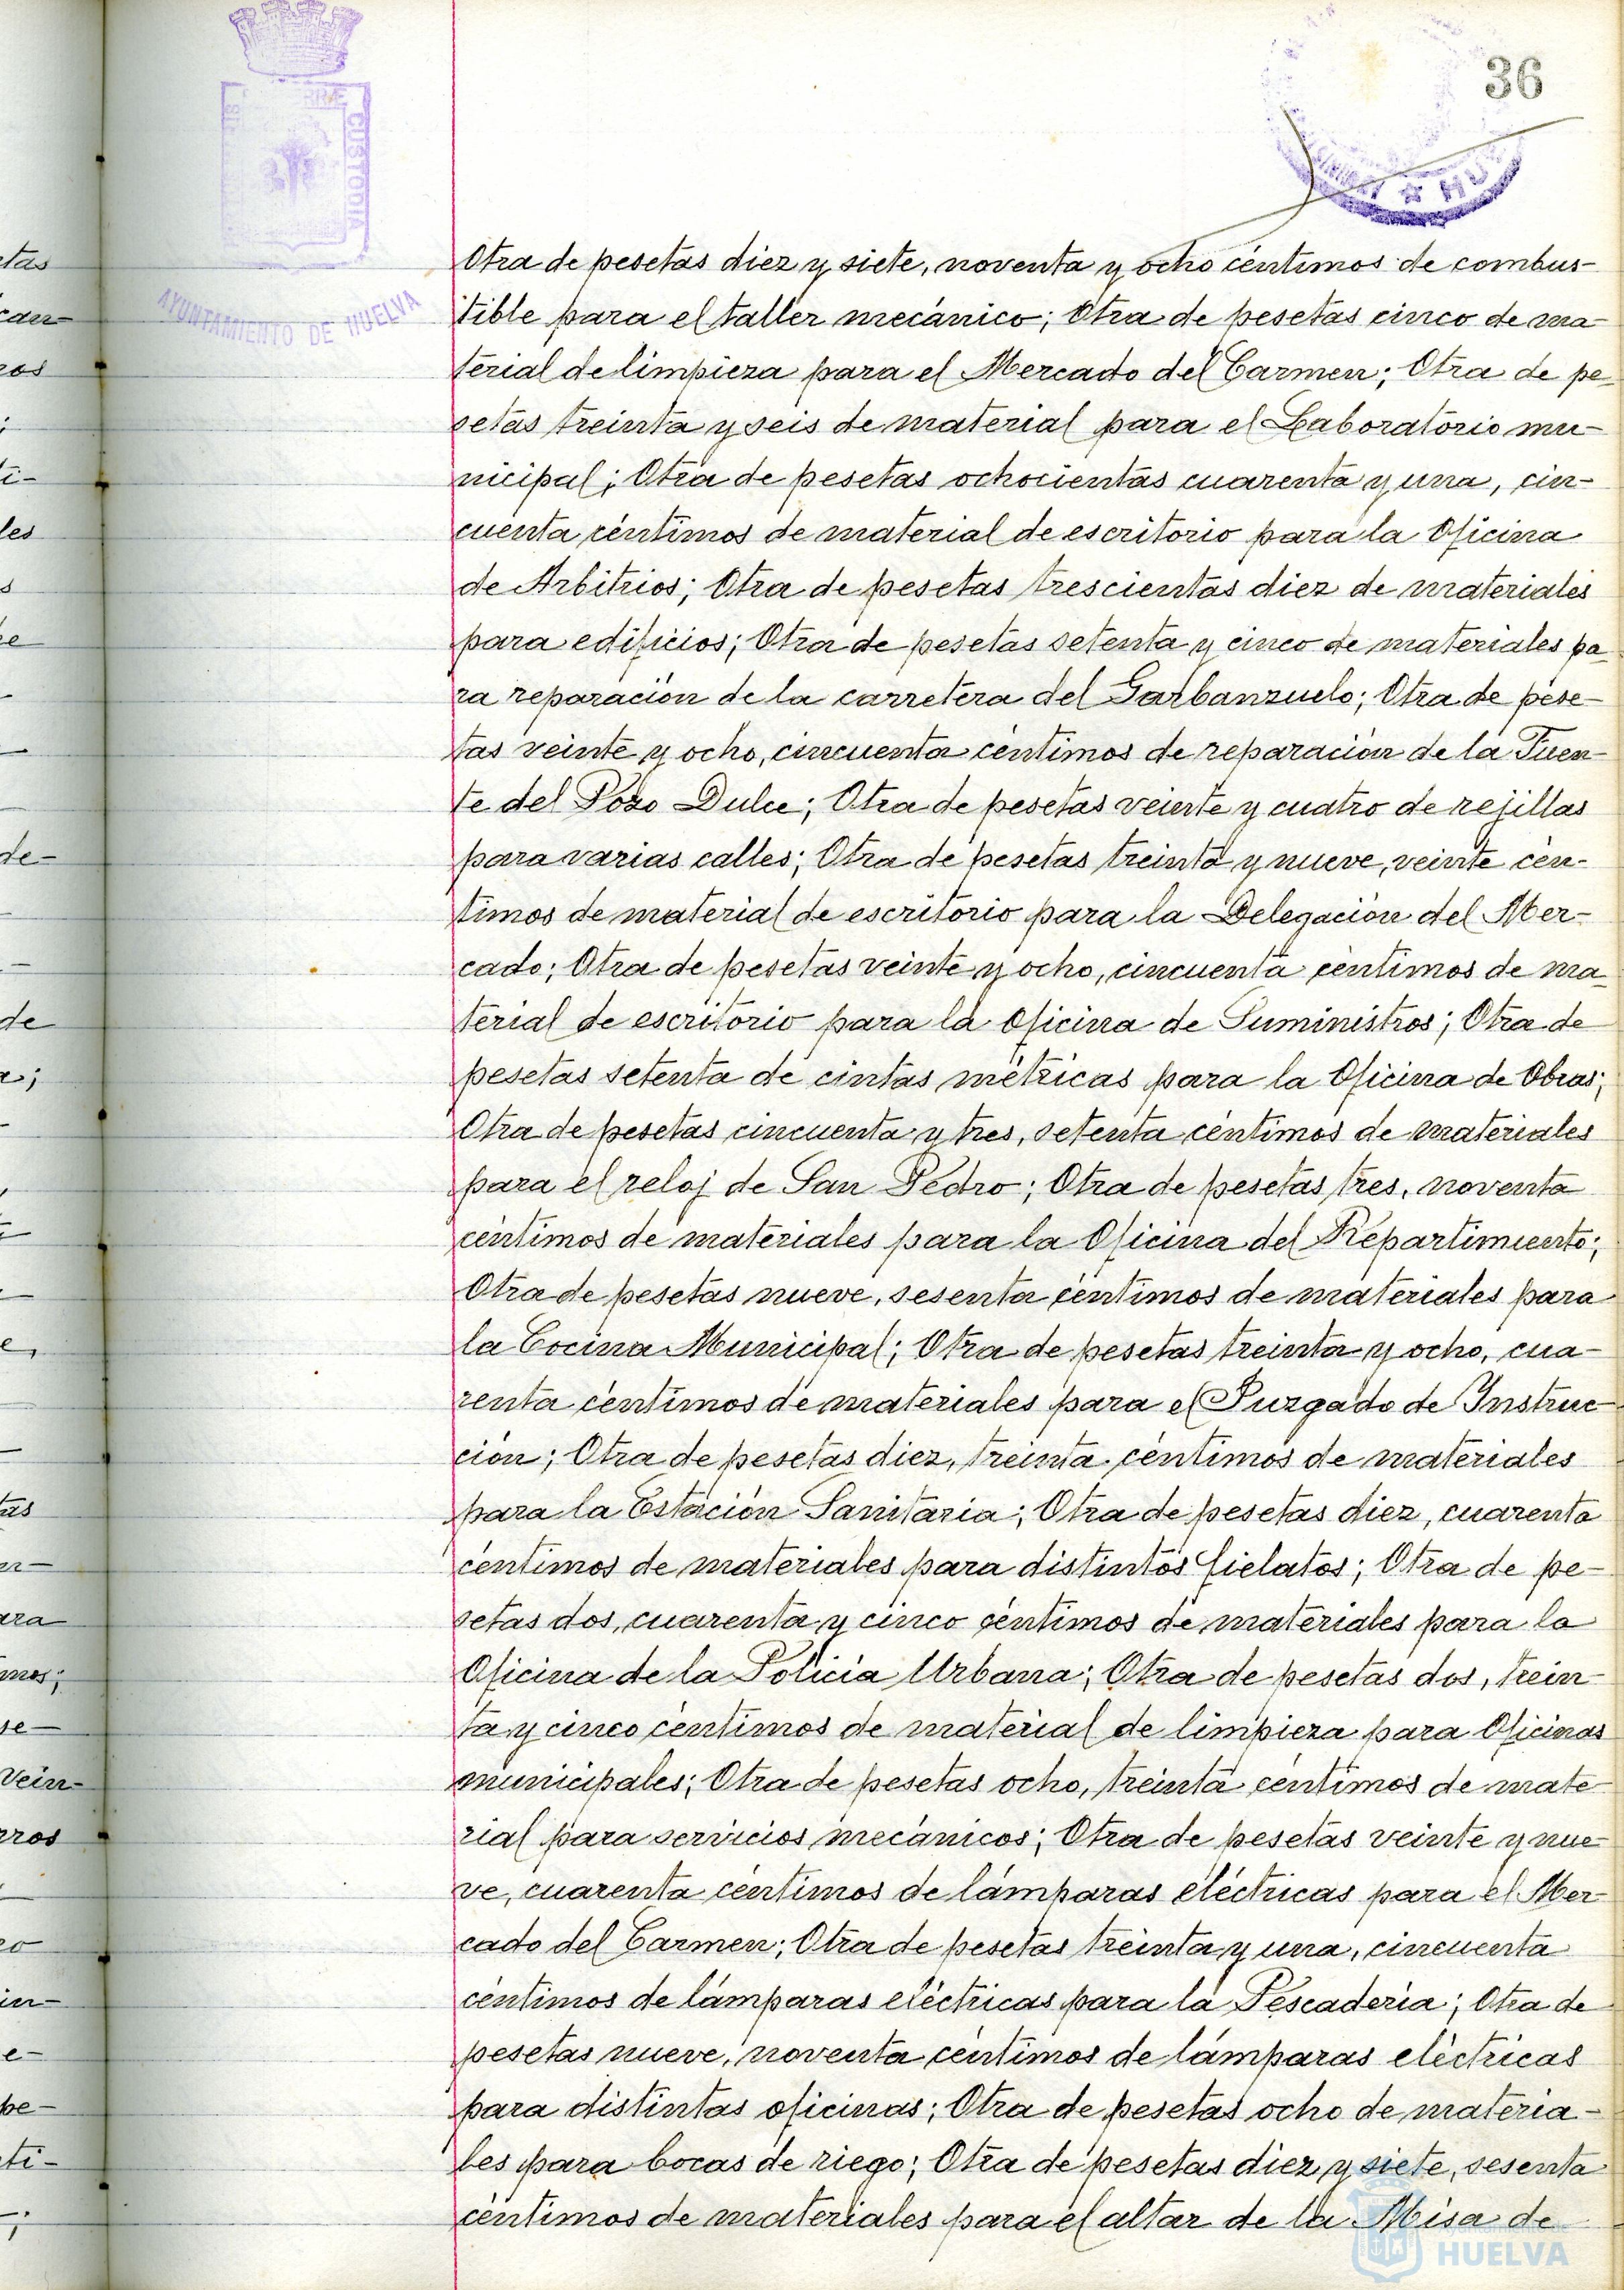 36
AYUNTAMIENTO DE HUELVA
CUSTODIA
Otra de pesetas diez y siete, noventa y ocho céntimos de combus-
tible para el taller mecánico; Otra de pesetas cinco de ma-
terial de limpieza para el Mercado del Carmen; Otra de pe-
setas treinta y seis de material para el Laboratorio mu-
nicipal; Otra de pesetas ochocientas cuarenta y una, cin-
cuenta céntimos de material de escritorio para la Oficina
de Arbitrios; Otra de pesetas trescientas diez de materiales
para edificios; Otra de pesetas setenta y cinco de materiales pa-
ra reparación de la carretera del Garbanzuelo; Otra de pese-
tas veinte y ocho, cincuenta céntimos de reparación de la Fuen-
te del Pozo Dulce; Otra de pesetas veinte y cuatro de rejillas
para varias calles; Otra de pesetas treinta y nueve, veinte cén-
timos de material de escritorio para la Delegación del Mer-
cado; Otra de pesetas veinte y ocho, cincuenta céntimos de ma-
terial de escritorio para la Oficina de Suministros; Otra de
pesetas setenta de cintas métricas para la Oficina de Obras;
Otra de pesetas cincuenta y tres, setenta céntimos de materiales
para el reloj de San Pedro; Otra de pesetas tres, noventa
céntimos de materiales para la Oficina del Repartimiento;
Otra de pesetas nueve, sesenta céntimos de materiales para
la Cocina Municipal; Otra de pesetas treinta y ocho, cua-
renta céntimos de materiales para el Juzgado de Instruc-
ción; Otra de pesetas diez, treinta céntimos de materiales
para la Estación Sanitaria; Otra de pesetas diez, cuarenta
céntimos de materiales para distintos fielatos; Otra de pe-
setas dos, cuarenta y cinco céntimos de materiales para la
Oficina de la Policía Urbana; Otra de pesetas dos, trein-
ta y cinco céntimos de material de limpieza para Oficinas
municipales; Otra de pesetas ocho, treinta céntimos de mate-
rial para servicios mecánicos; Otra de pesetas veinte y nue-
ve, cuarenta céntimos de lámparas eléctricas para el Mer-
cado del Carmen; Otra de pesetas treinta y una, cincuenta
céntimos de lámparas eléctricas para la Pescadería; Otra de
pesetas nueve, noventa céntimos de lámparas eléctricas
para distintas oficinas; Otra de pesetas ocho de materia-
les para bocas de riego; Otra de pesetas diez y siete, sesenta
céntimos de materiales para el altar de la Misa de
HUELVA